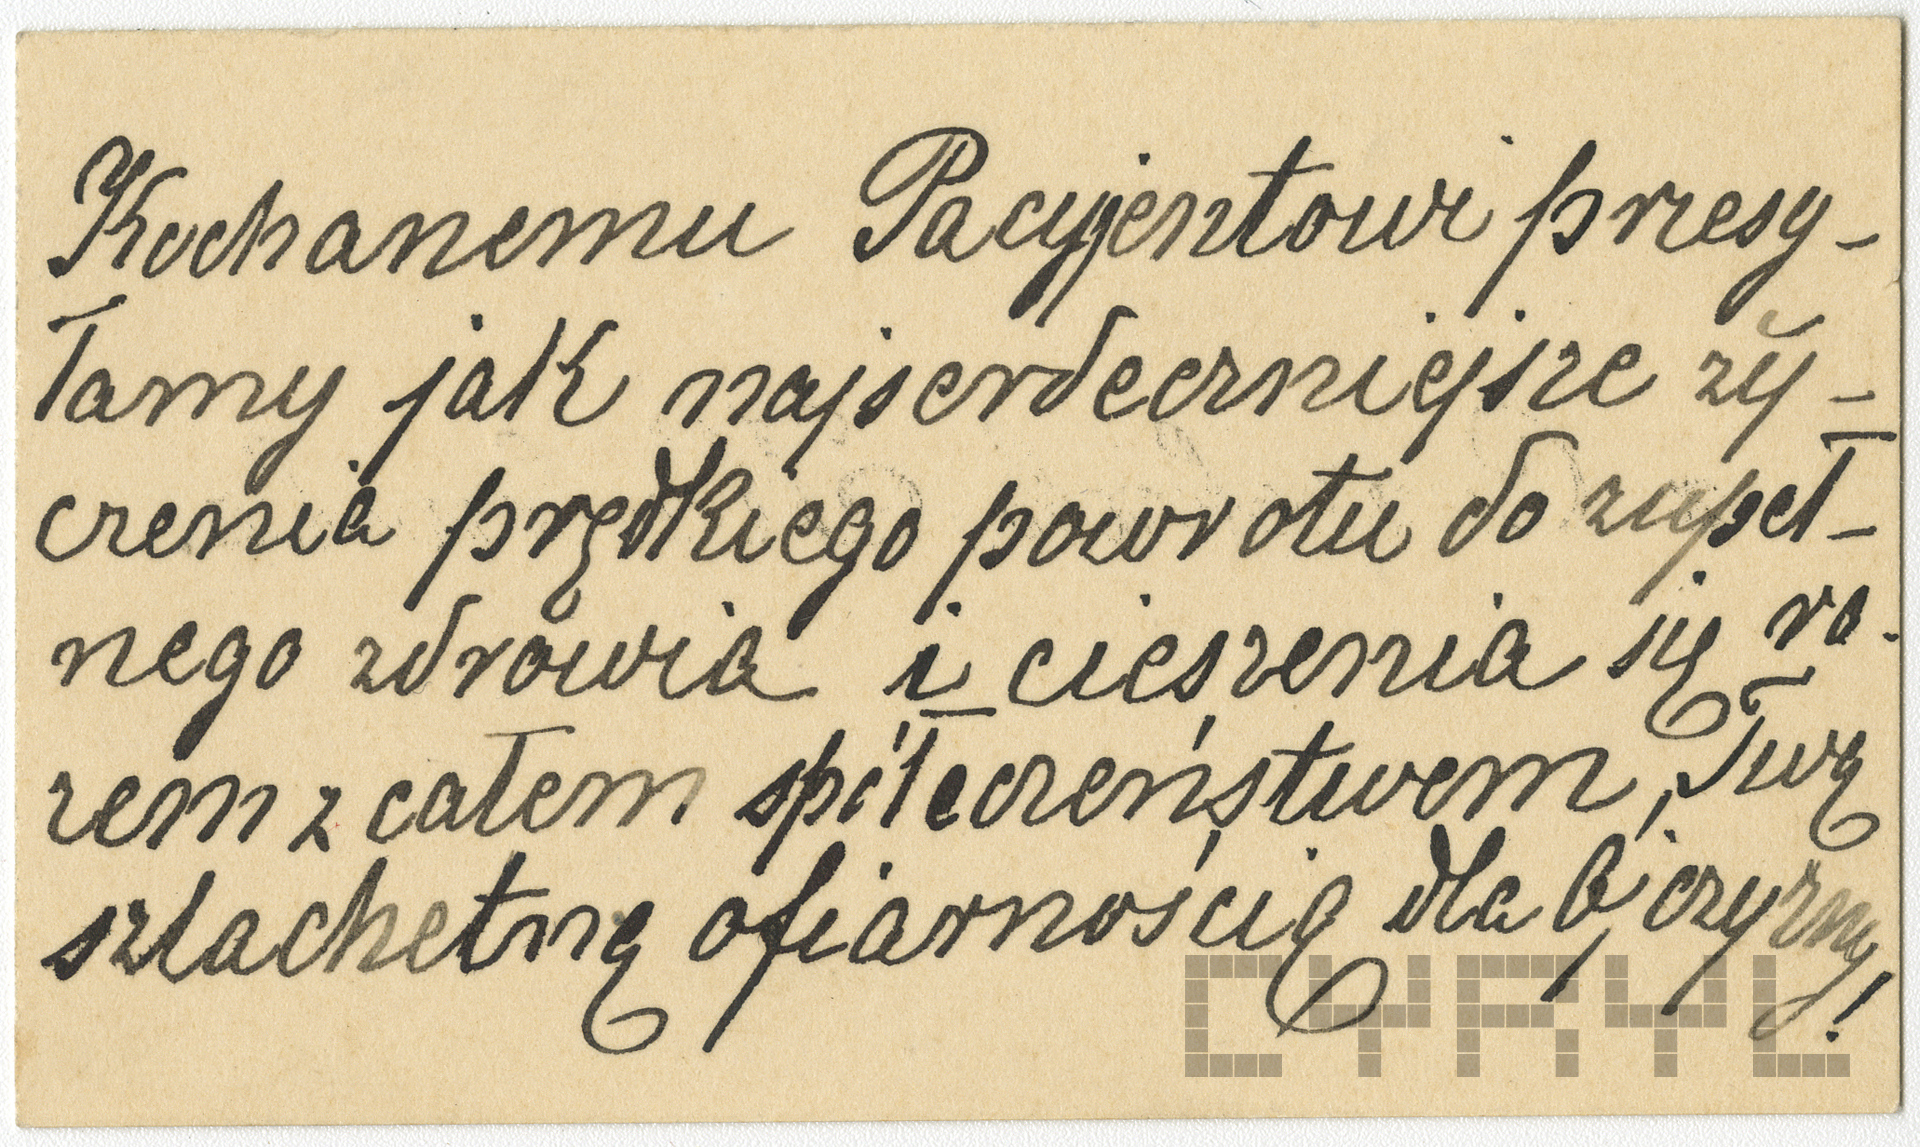 Kochanemu Pacyjentowi przesy-
łamy jak najserdeczniejsze ży-
czenia prędkiego powrotu do zupeł-
nego zdrowia i cieszenia się ra-
zem z całem spółeczeństwem, Twą
szlachetną ofiarnością dla Ojczyzny!
CYRYL